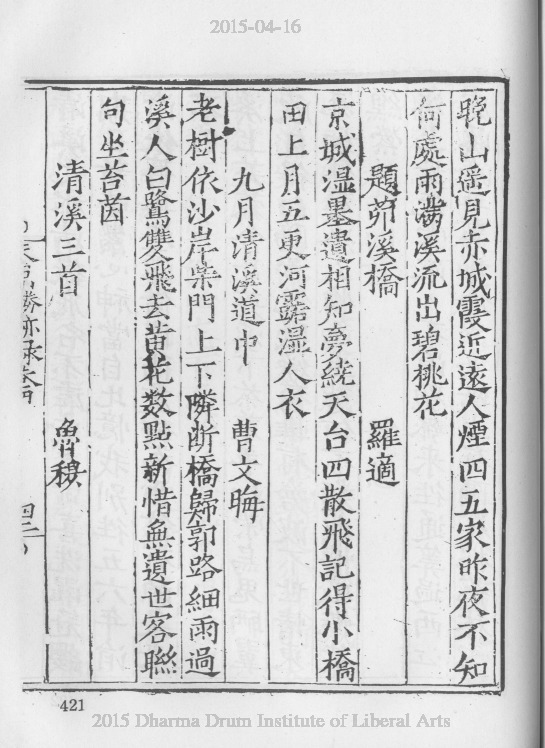 2015-04-16
晚山遙見赤城霞近遠人煙四五家昨夜不知
何處雨滿溪流出碧桃花
題茆溪橋 羅適
京城湿墨遺相知夢繞天台四散飛記得小橋
田上月五更河露湿人衣
九月清溪道中 曹文晦
老樹依沙岸柴門上下隣断橋歸郭路細雨過
溪人白鷺雙飛去黄花数點新惜無遺世客聯
句坐苔茵
清溪三首 魯穆
421
2015 Dharma Drum Institute of Liberal Arts